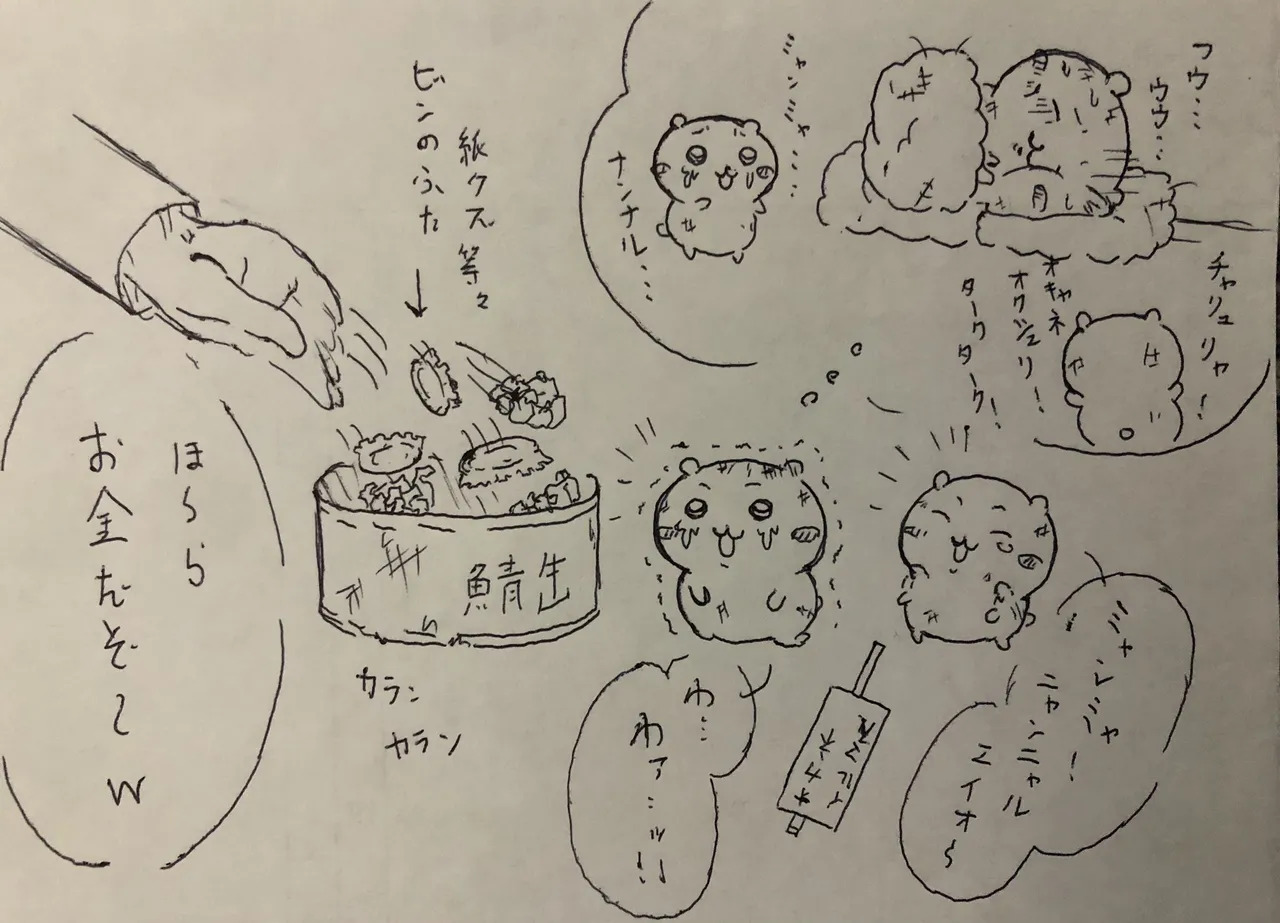 フウ…
ウウ…
ミャンミャ……
ナンナル……
チャリュリャ!
オキャネ
オクシュリ!
タークターク!
紙クズ等々
ビンのふた
ほ〜ら
お金だぞ〜w
鯖缶
カラン
カラン
わ…
わァ…ッ!!
ミャレミャ!
ニャンニャル
ミイオ〜